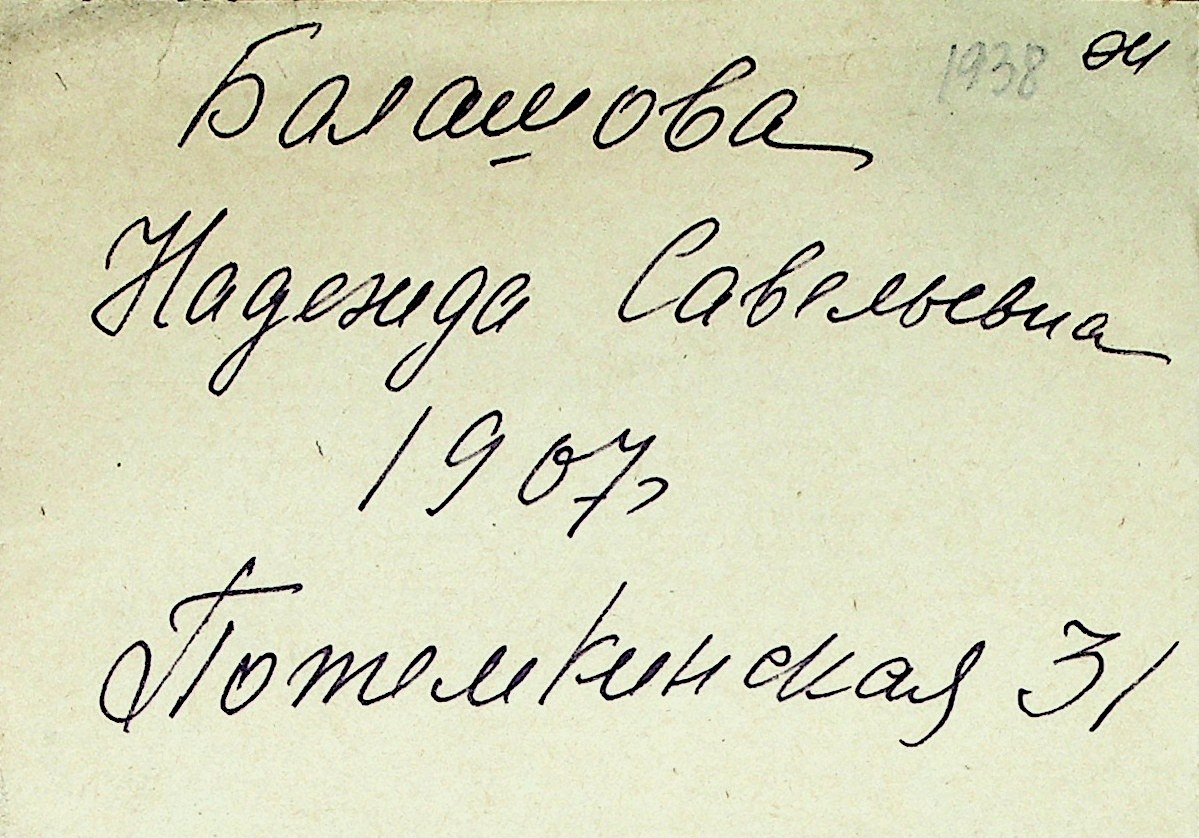 1938
Балашова
Надежда Савельевна
1907
Потемкинская 31